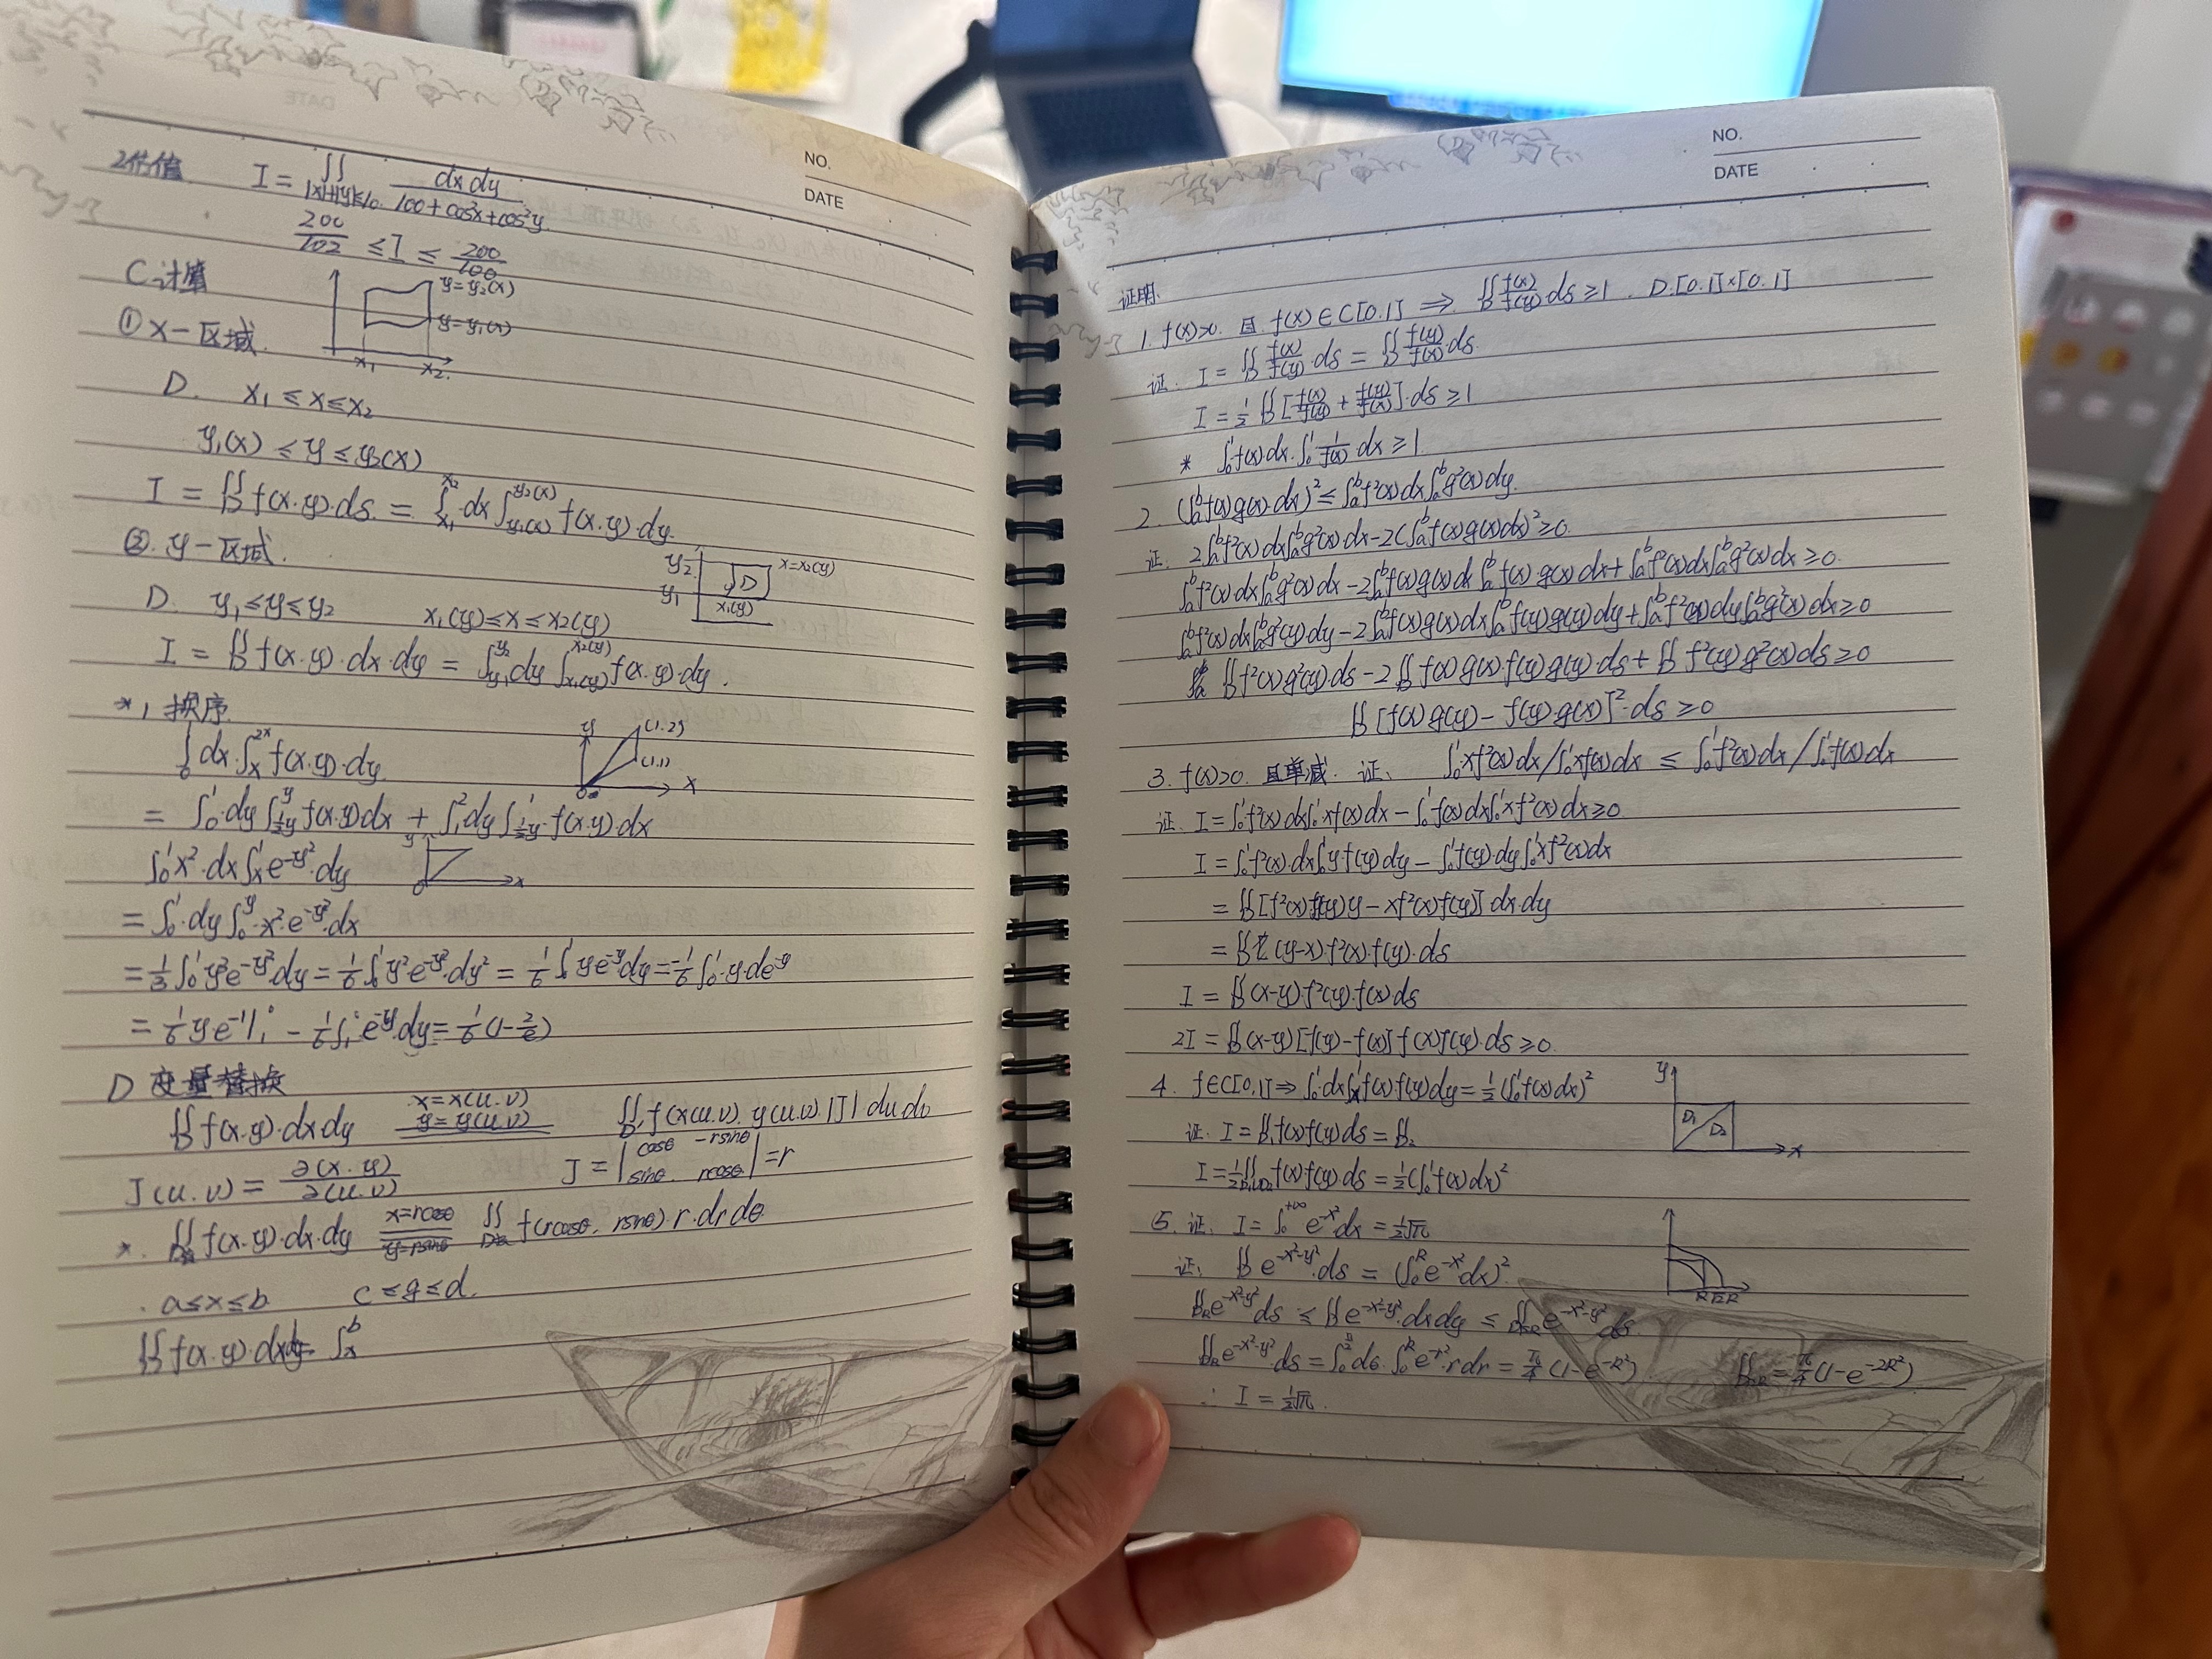 NO.
DATE
2估值 I = ∬|x|+|y|≤10 dxdy/(100+cos²x+cos²y)
200/102 ≤ I ≤ 200/100
C 计算
y=y₂(x)
y=y₁(x)
x₁ x₂
① X-区域
D. x₁ ≤ x ≤ x₂
y₁(x) ≤ y ≤ y₂(x)
I = ∬D f(x.y).ds. = ∫x₁^x₂ dx ∫y₁(x)^y₂(x) f(x.y).dy.
②. y-区域.
y₂ x=x₂(y)
y₁ D
x₁(y)
D. y₁ ≤ y ≤ y₂ x₁(y) ≤ x ≤ x₂(y)
I = ∬D f(x.y).dx.dy = ∫y₁^y₂ dy ∫x₁(y)^x₂(y) f(x.y).dy.
*1 换序
∫₀¹ dx.∫x^2x f(x.y).dy.
y (1.2)
(1.1)
0 x
= ∫₀¹.dy ∫½y^y f(x.y)dx + ∫₁² dy ∫½y^1 f(x.y) dx
∫₀¹ x².dx ∫x^1 e^-y².dy
y
0 x
= ∫₀¹.dy ∫₀^y.x² e^-y² dx
= 1/3 ∫₀¹ y³e^-y² dy = 1/6 ∫₀¹ y²e^-y².dy² = 1/6 ∫₀¹ ye^-y dy = -1/6 ∫₀¹.y.de^-y
= 1/6 ye^-y|₁⁰ - 1/6 ∫₁⁰ e^-y.dy = 1/6(1-2/e)
D 变量替换
∬D f(x.y).dxdy x=x(u.v) y=y(u.v) ∬D' f(x(u.v). y(u.v) |J| dudv
J(u.v) = ∂(x.y)/∂(u.v) J = |cosθ -rsinθ sinθ. rcosθ| = r
*. ∬D f(x.y).dx.dy x=rcosθ y=rsinθ ∬D f(rcosθ. rsinθ) r.drdθ
. a≤x≤b c≤y≤d.
∬D f(x.y).dxdy= ∫x^b
NO.
DATE
证明.
1. f(x)>0. 且 f(x)∈C[0.1] ⇒ ∬D f(x)/f(y) ds ≥1 . D.[0.1]×[0.1]
证. I = ∬D f(x)/f(y).ds = ∬D f(y)/f(x).ds.
I = ½ ∬D [f(x)/f(y) + f(y)/f(x)].ds ≥1
* ∫₀¹f(x)dx.∫₀¹ 1/f(x) dx ≥1
2. (∫a^b f(x)g(x).dx)² ≤ ∫a^b f²(x)dx ∫a^b g²(x)dy.
证. 2∫a^b f²(x)dx∫a^b g²(x)dx - 2(∫a^b f(x)g(x)dx)² ≥0.
∫a^b f²(x)dx∫a^b g²(x)dx - 2∫a^b f(x)g(x)dx ∫a^b f(x)g(x)dx + ∫a^b f²(x)dx∫a^b g²(x)dx ≥0.
∫a^b f²(x)dx∫a^b g²(y)dy - 2∫a^b f(x)g(x)dx∫a^b f(y)g(y)dy + ∫a^b f²(y)dy∫a^b g²(x)dx ≥0
∬D f²(x)g²(y)ds - 2∬D f(x)g(x).f(y)g(y)ds + ∬D f²(y)g²(x)ds ≥0
∬D [f(x)g(y) - f(y)g(x)]².ds ≥0
3. f(x)>0. 且单减. 证、 ∫₀¹xf²(x)dx/∫₀¹xf(x)dx ≤ ∫₀¹f²(x)dx/∫₀¹f(x)dx
证. I = ∫₀¹f²(x)dx∫₀¹xf(x)dx - ∫₀¹f(x)dx∫₀¹xf²(x)dx ≥0.
I = ∫₀¹f²(x).dx∫₀¹y.f(y)dy - ∫₀¹f(y)dy∫₀¹xf²(x)dx
= ∬D [f²(x)f(y)y - xf²(x)f(y)] dx.dy
= ∬D (y-x)f²(x).f(y).ds
I = ∬D (x-y).f²(y).f(x)ds
2I = ∬D (x-y)[f(y)-f(x)]f(x)f(y).ds ≥0.
4. f∈C[0.1] ⇒ ∫₀¹dx∫x^1 f(x)f(y)dy = ½(∫₀¹f(x)dx)²
y
D₁
D₂
x
证. I = ∬D₁ f(x)f(y)ds = ∬D₂
I = ½∬D₁∪D₂ f(x)f(y)ds = ½(∫₀¹f(x)dx)²
5. 证. I = ∫₀^+∞ e^-x² dx = ½√π
证. ∬D e^-x²-y².ds = (∫₀^R e^-x² dx)².
R √2R
∬DR e^-x²-y² ds ≤ ∬D e^-x²-y².dxdy ≤ ∬D√2R e^-x²-y² ds
∬DR e^-x²-y².ds = ∫₀^π/2 dθ.∫₀^R e^-r².rdr = π/4 (1-e^-R²) ∬D√2R = π/4(1-e^-2R²)
∴ I = ½√π.